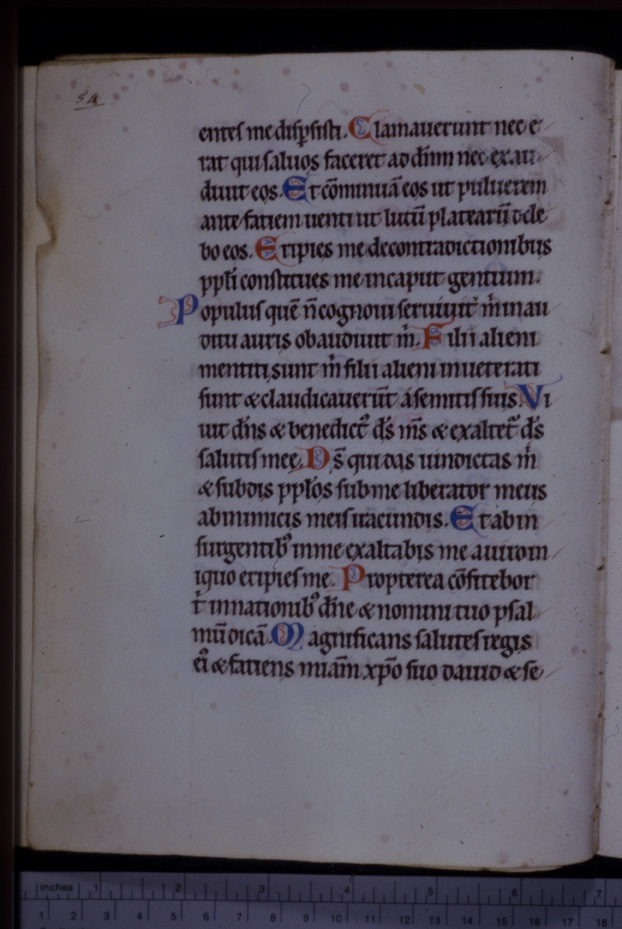 54
entes me disꝑsisti. Clamauerunt nec e
rat qui saluos faceret ad dnm nec exau
diuit eos. Et cōminuā eos ut puluerem
ante fatiem uenti ut lutū platearū dele
bo eos. Eripies me decontradictionibus
ppli constitues me incaput gentium.
Populus quē n̄ cognoui seruiuit m̄ inau
ditu auris obaudiuit m̄. Filii alieni
mentiti sunt m̄ filii alieni inueterati
sunt & claudicauerūt a semitis suis. Vi
uit dn̄s & benedict᷒ ds̄ ms̄ & exaltet᷒ ds̄
salutis mee. Ds̄ qui das uindictas m̄
& subdis pplos sub me liberator meus
abinimicis meis iracundis. Et abin
surgentib᷒ inme exaltabis me auirom
iquo eripies me. Propterea cōfitebor
t̄ innationib᷒ dn̄e & nomini tuo psal
mū dicā. Magnificans salutes regis
ei᷒ & fatiens miam̄ xp̄o suo dauid & se
inches 1 2 3 4 5 6 7
1 2 3 4 5 6 7 8 9 10 11 12 13 14 15 16 17 18